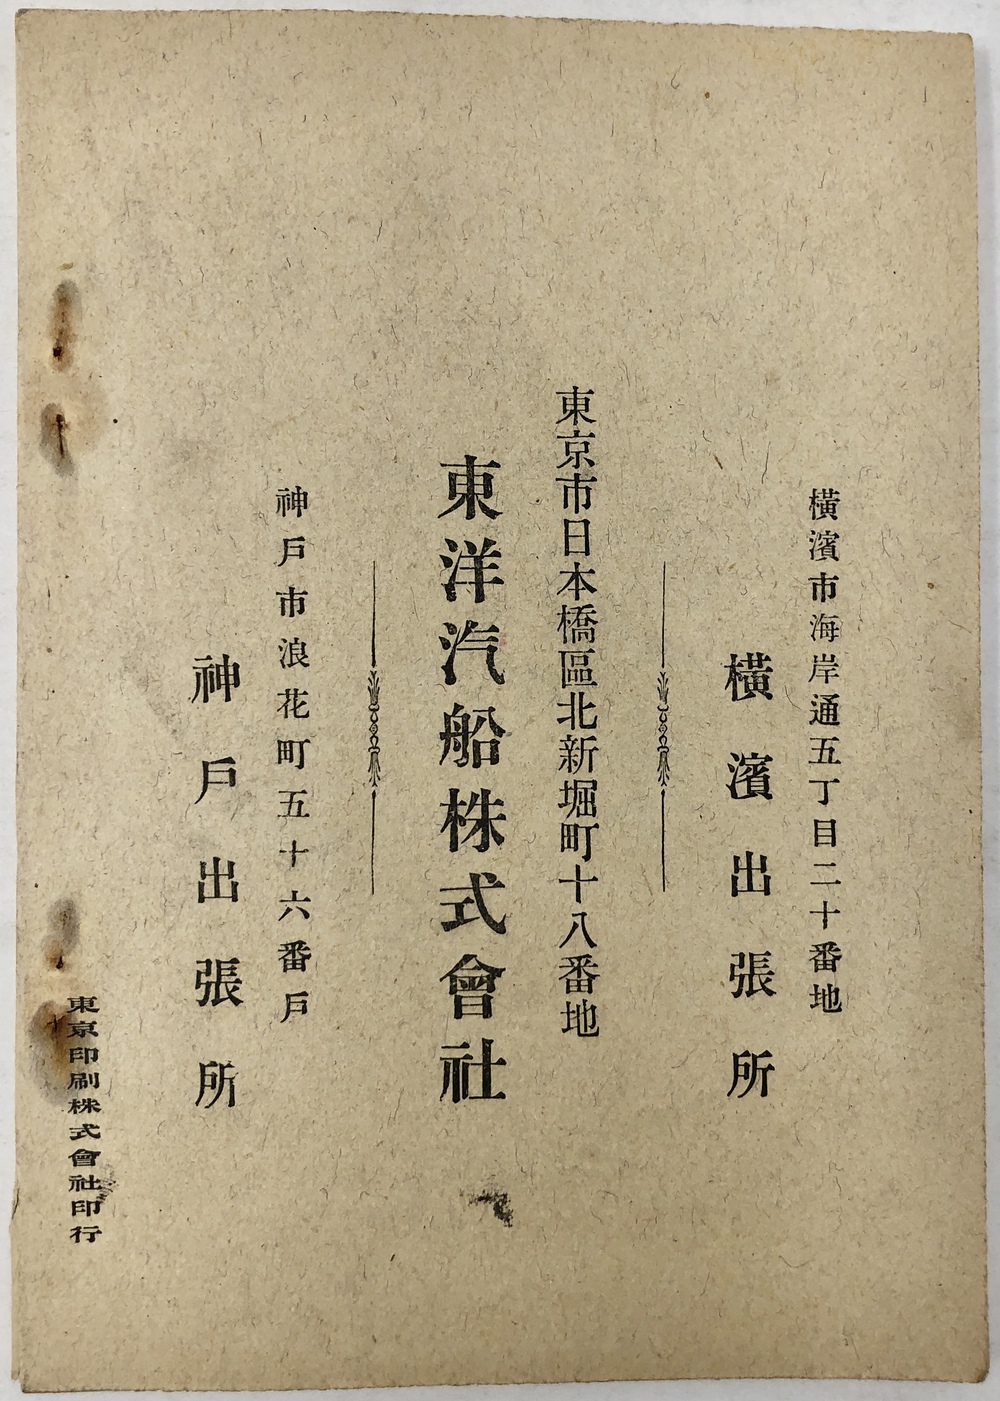 橫濱市海岸通五丁目二十番地
橫濱出張所
東京市日本橋區北新堀町十八番地
東洋汽船株式會社
神戶市浪花町五十六番戶
神戶出張所
東京印刷株式會社印行